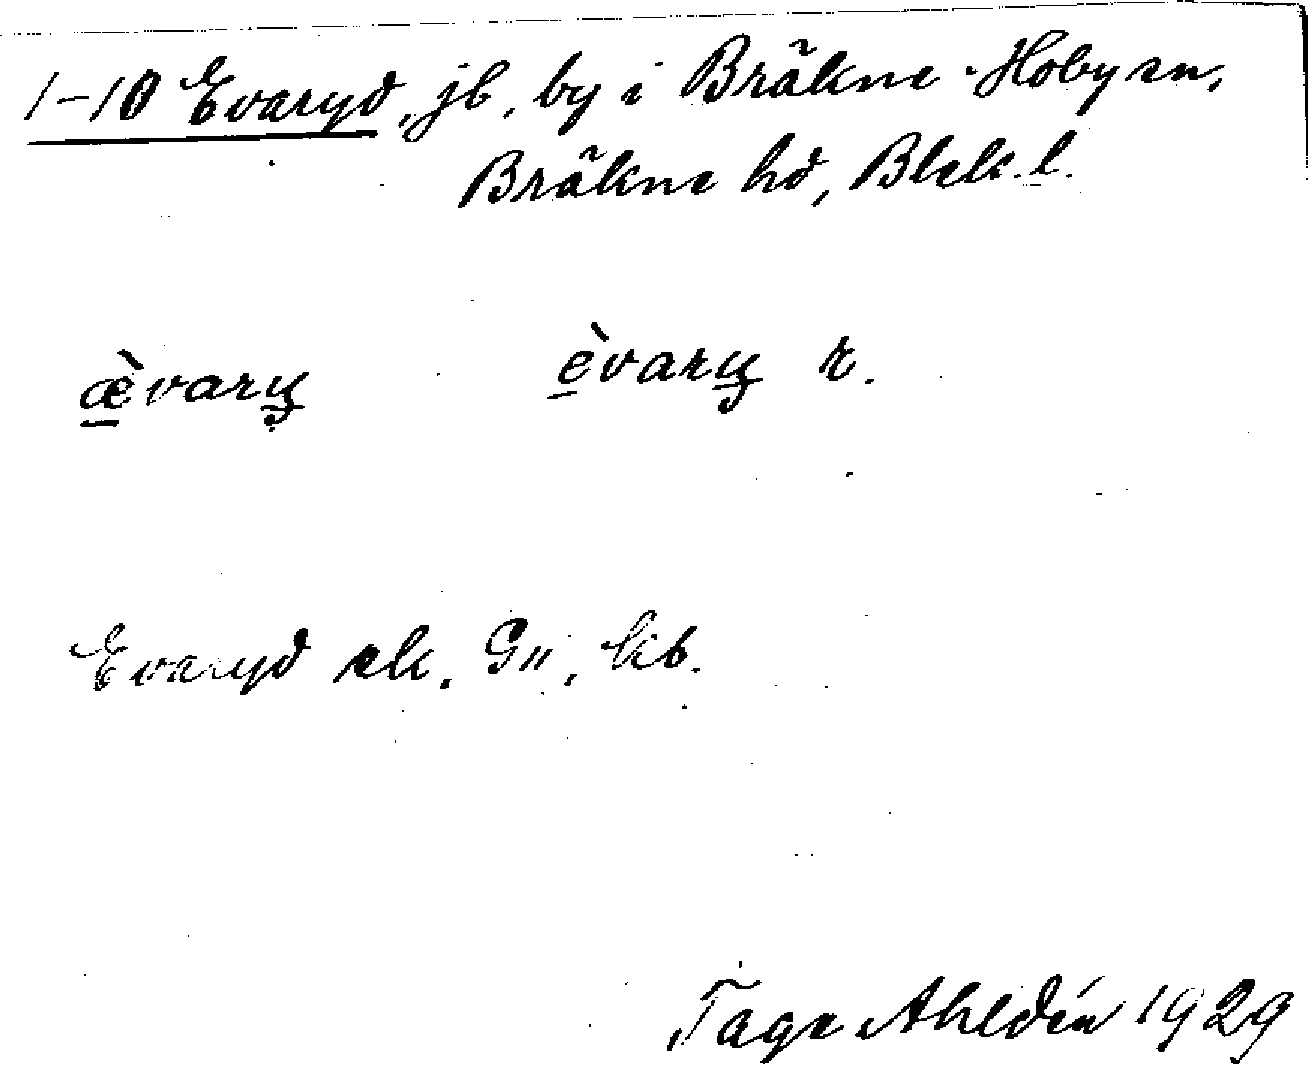 1-10 Evaryd, jb, by i Bräkne-Hoby sn,
Bräkne hd, Blek. l.
æ̀vary èvary r.
Evaryd sk. G", kb.
Tage Ahldén 1929